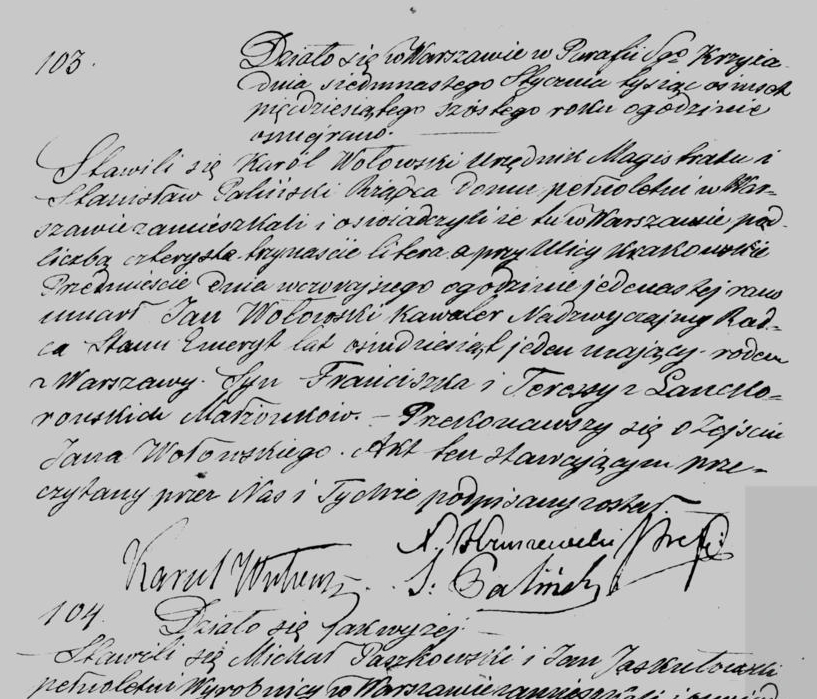 103.
Działo się w Warszawie w Parafii Sgo Krzyża
dnia siedmnastego Stycznia tysiąc ośmset
pięćdziesiątego szóstego roku o godzinie
osmej rano.
Stawili się Karól Wołowski Urzędnik Magistratu i
Stanisław Paliński Rządca domu pełnoletni w War-
szawie zamieszkali i oświadczyli że tu w Warszawie pod
liczbą czterysta trzynaście litera a przy Ulicy Krakowskie
Przedmieście dnia wczorajszego o godzinie jedenastej rano
umarł Jan Wołowski Kawaler Nadzwyczajny Rad-
ca Stanu Emeryt lat ośmdziesiąt jeden mający rodem
z Warszawy. Syn Franciszka i Teressy z Lancko-
rońskich Małżonków. – Przekonawszy się o Zejściu
Jana Wołowskiego. Akt ten stawającym prze-
czytany przez Nas i Tychże podpisany został. –
Karol Wołowski
S. Paliński
104.
Działo się jak wyżej –
Stawili się Michał Paszkowski i Jan Jaskułowski
pełnoletni Wyrobnicy w Warszawie zamieszkali i